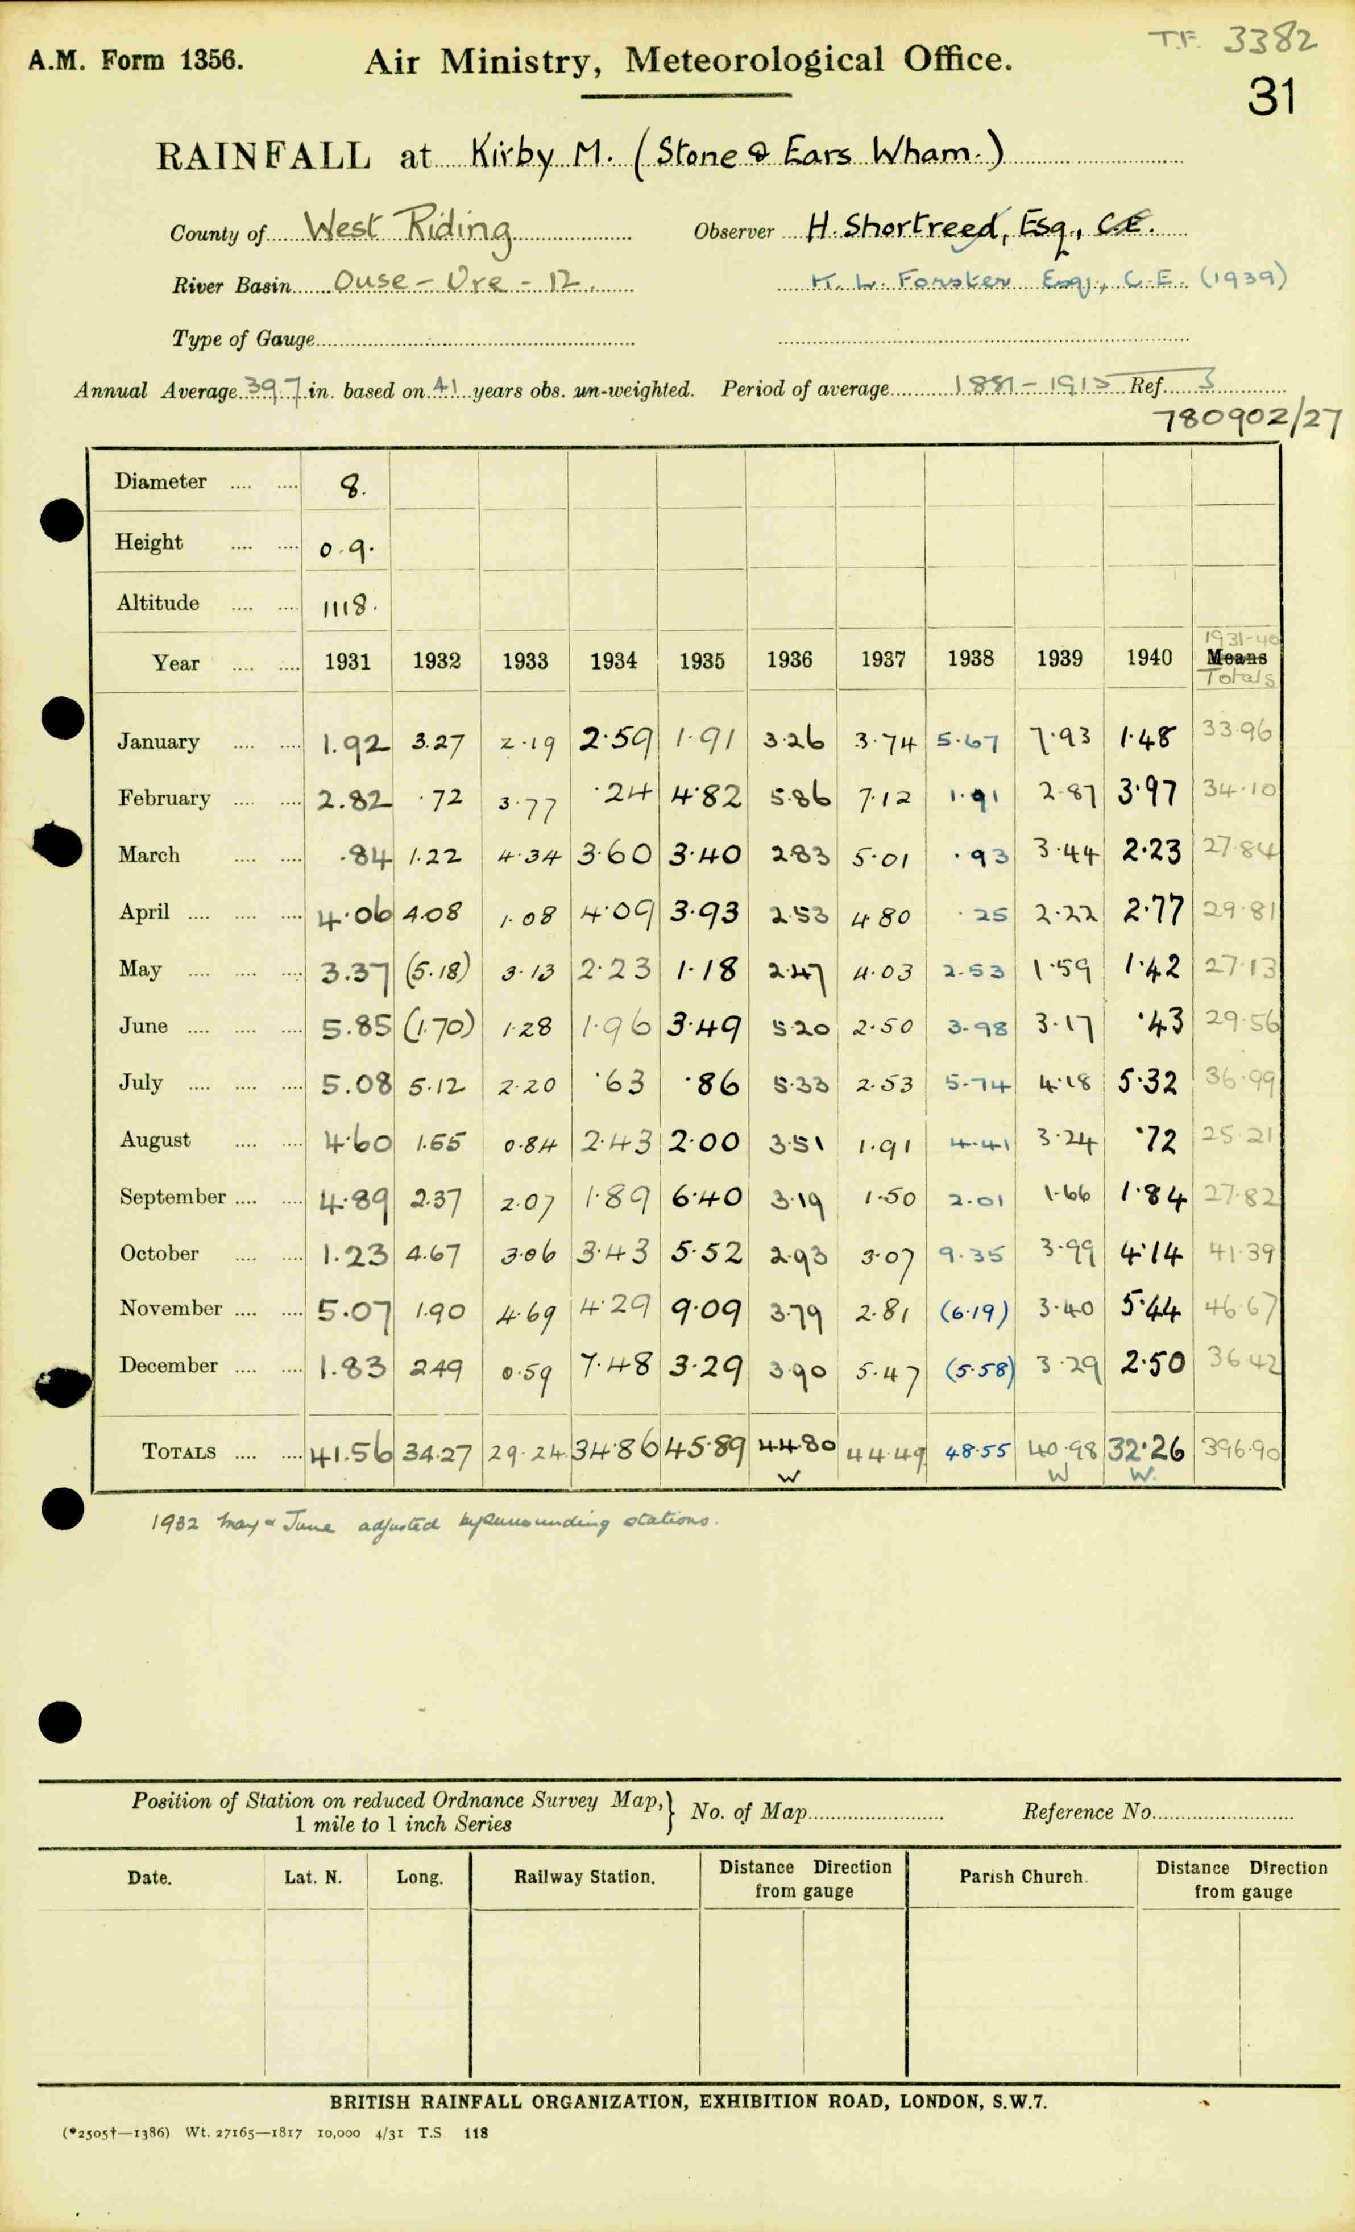 T.F. 3382
A.M. Form 1356. Air Ministry, Meteorological Office.
31
RAINFALL at Kirby M. (Stone & Ears Wham.)
County of West Riding Observer H. Shortreed, Esq., C.E.
River Basin Ouse - Ure - 12. H. L. Forster Esq., C.E. (1939)
Type of Gauge
Annual Average 39.7 in. based on 41 years obs. un-weighted. Period of average 1881-1915 Ref. S
780902/27
Diameter .... .... 8.
Height .... .... 0.9.
Altitude .... .... 1118.
1931-40
Year .... .... 1931 1932 1933 1934 1935 1936 1937 1938 1939 1940 Means
Totals
January .... .... 1.92 3.27 2.19 2.59 1.91 3.26 3.74 5.67 7.93 1.48 33.96
February .... .... 2.82 .72 3.77 .24 4.82 5.86 7.12 1.91 2.87 3.97 34.10
March .... .... .84 1.22 4.34 3.60 3.40 2.83 5.01 .93 3.44 2.23 27.84
April .... .... .... 4.06 4.08 1.08 4.09 3.93 2.53 4.80 .25 2.22 2.77 29.81
May .... .... .... 3.37 (5.18) 3.13 2.23 1.18 2.47 4.03 2.53 1.59 1.42 27.13
June .... .... .... 5.85 (1.70) 1.28 1.96 3.49 5.20 2.50 3.98 3.17 .43 29.56
July .... .... .... 5.08 5.12 2.20 .63 .86 5.33 2.53 5.74 4.18 5.32 36.99
August .... .... 4.60 1.55 0.84 2.43 2.00 3.51 1.91 4.41 3.24 .72 25.21
September .... .... 4.89 2.37 2.07 1.89 6.40 3.19 1.50 2.01 1.66 1.84 27.82
October .... .... 1.23 4.67 3.06 3.43 5.52 2.93 3.07 9.35 3.99 4.14 41.39
November .... .... 5.07 1.90 4.69 4.29 9.09 3.79 2.81 (6.19) 3.40 5.44 46.67
December .... .... 1.83 2.49 0.59 7.48 3.29 3.90 5.47 (5.58) 3.29 2.50 36.42
TOTALS .... .... 41.56 34.27 29.24 34.86 45.89 44.80 44.49 48.55 40.98 32.26 396.90
W W W.
1932 May & June adjusted by surrounding stations.
Position of Station on reduced Ordnance Survey Map, } No. of Map Reference No.
1 mile to 1 inch Series
Date. Lat. N. Long. Railway Station. Distance Direction Parish Church. Distance Direction
from gauge from gauge
BRITISH RAINFALL ORGANIZATION, EXHIBITION ROAD, LONDON, S.W.7.
(*2505†—1386) Wt. 27165—1817 10,000 4/31 T.S 118